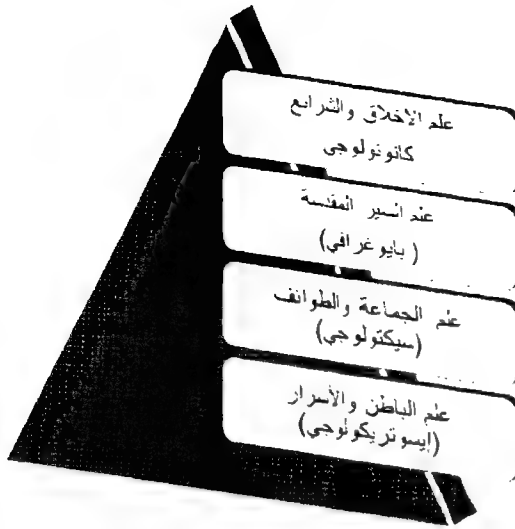 علم الاخلاق والشرايع
كانونولوجي
علم السير المقدسة
(بايوغرافي)
علم الجماعة والطوائف
(سيكتولوجي)
علم الباطن والأسرار
(إيسوتريكولوجي)